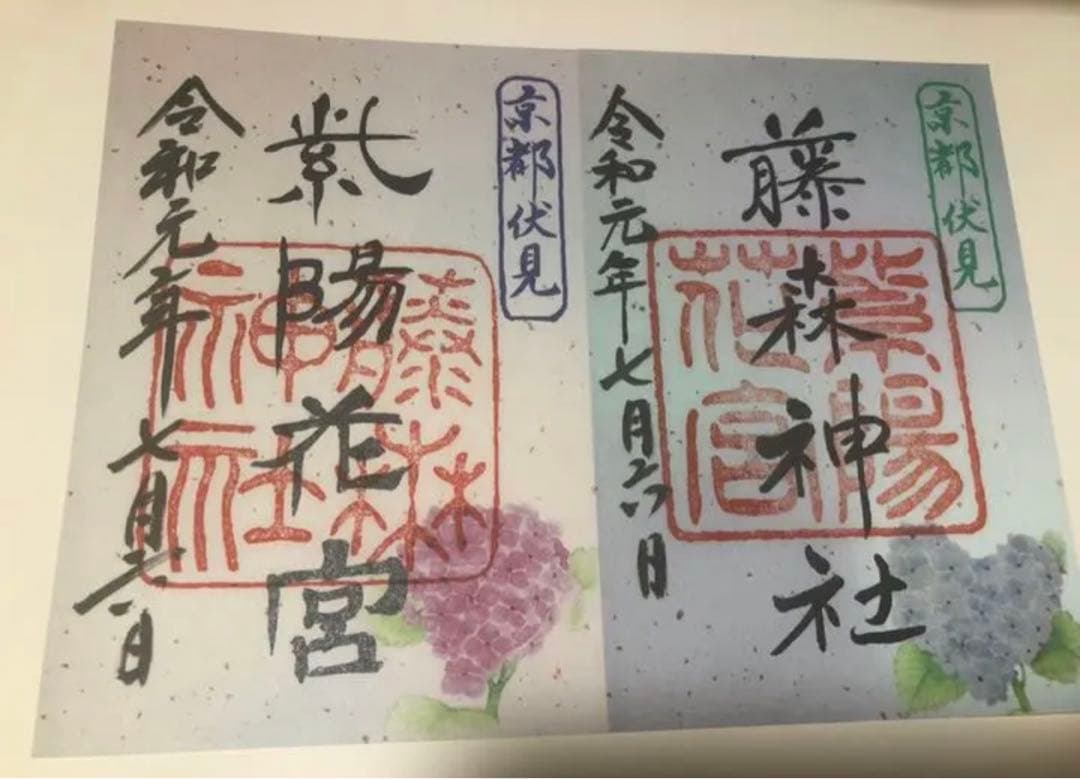 京都伏見
藤森神社
紫陽花宮
令和元年七月六日
京都伏見
紫陽花宮
藤森神社
令和元年七月六日